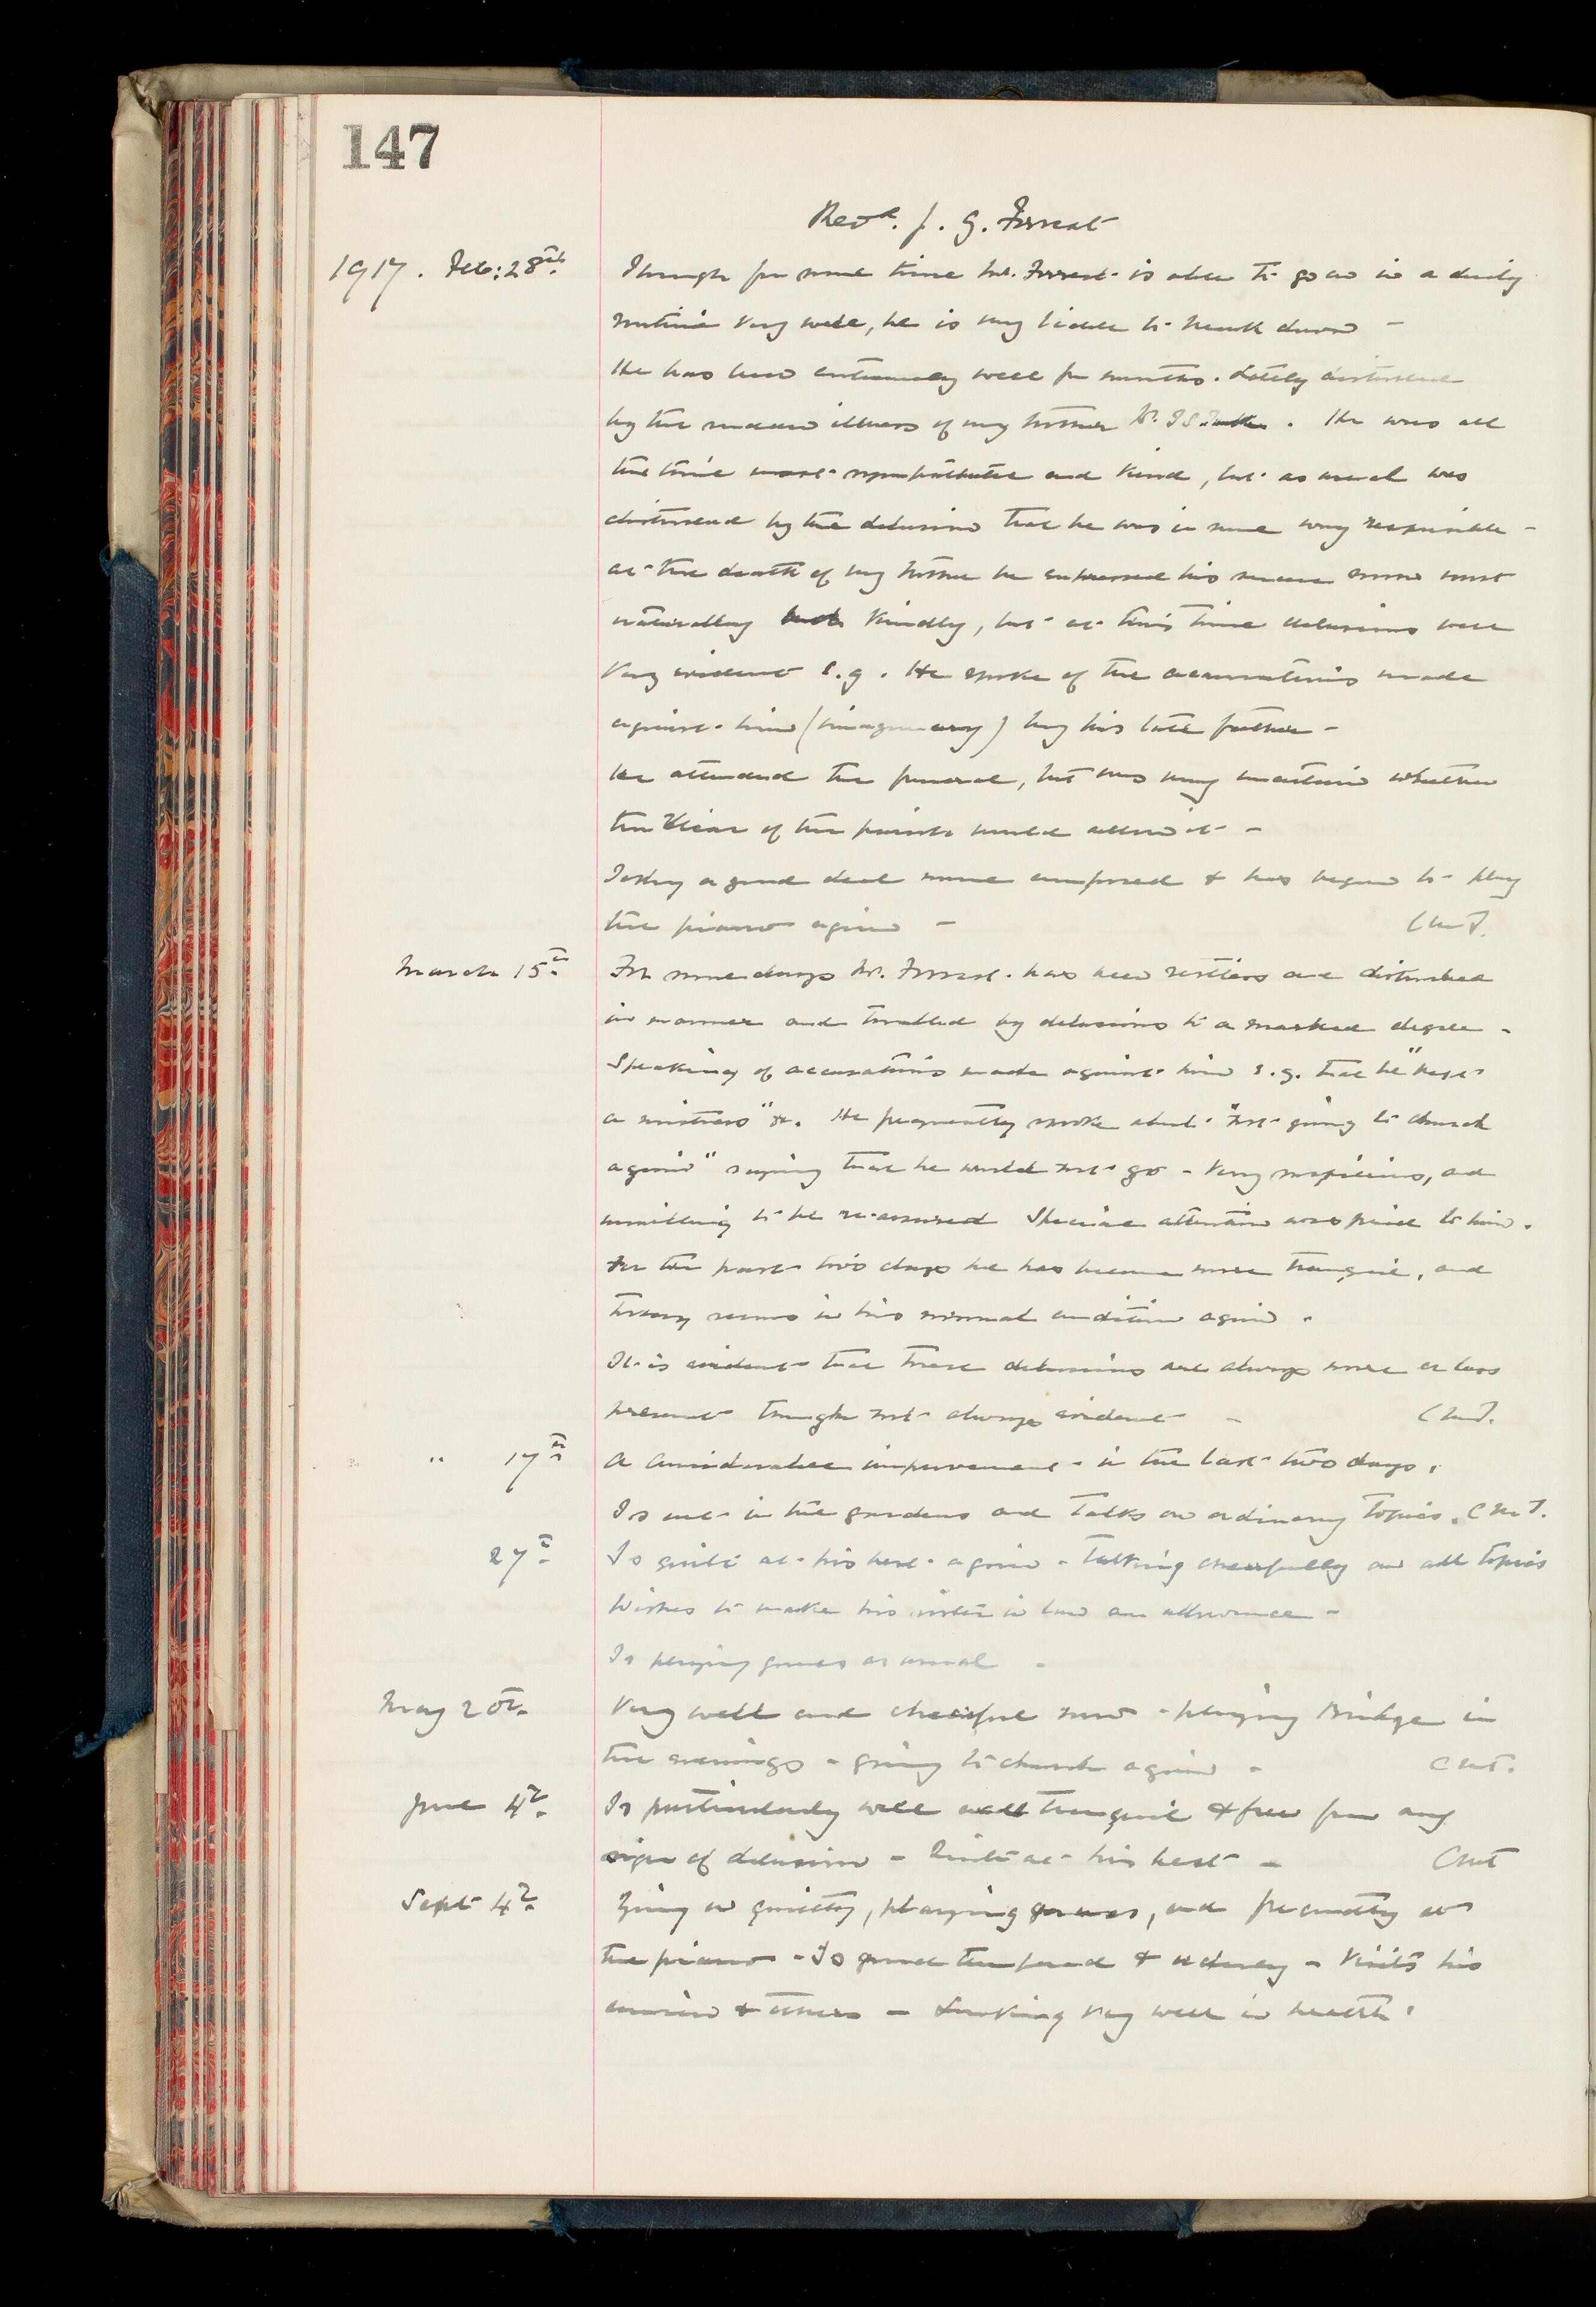 147
Revd. J. G. Forrest
1917. Feb: 28th. Though for some time Mr. Forrest is able to go on in a daily
routine very well, he is very liable to break down -
He has been extremely well for months. Lately disturbed
by the sudden illness of my brother Dr. . He was all
the time most sympathetic and kind, but as usual was
disturbed by the delusion that he was in some way responsible -
at the death of my brother he expressed his sincere sorrow most
naturally kindly, but at this time delusions were
very evident e.g. He spoke of the accusations made
against him (imaginary) by his late father -
He attended the funeral, but was very uncertain whether
the Vicar of the parish would allow it -
Today a good deal more composed & has begun to play
the piano again - CMT.
March 15th. For some days Mr. Forrest has been restless and disturbed
in manner and troubled by delusions to a marked degree -
Speaking of accusations made against him e.g. that he "kept
a mistress" &c. He frequently spoke about "not going to church
again" saying that he would not go - Very suspicious, and
unwilling to be re-assured Special attention was paid to him.
For the past two days he has become more tranquil, and
today seems in his normal condition again.
It is evident that these delusions are always more or less
present though not always evident - CMT.
" 17th. A considerable improvement in the last two days.
Is out in the gardens and talks on ordinary topics. CMT.
27th. Is quite at his best again - talking cheerfully on all topics
Wishes to make his sister in law an allowance -
Is playing games as usual -
May 20th. Very well and cheerful now - playing Bridge in
the evenings - going to church again - CMT.
June 4th. Is particularly well tranquil & free from any
sign of delusion - Quite at his best - CMT
Sept 4th. Going on quietly, playing games, and frequently at
the piano - Is good tempered & orderly - Visits his
cousin & others - Looking very well in health.